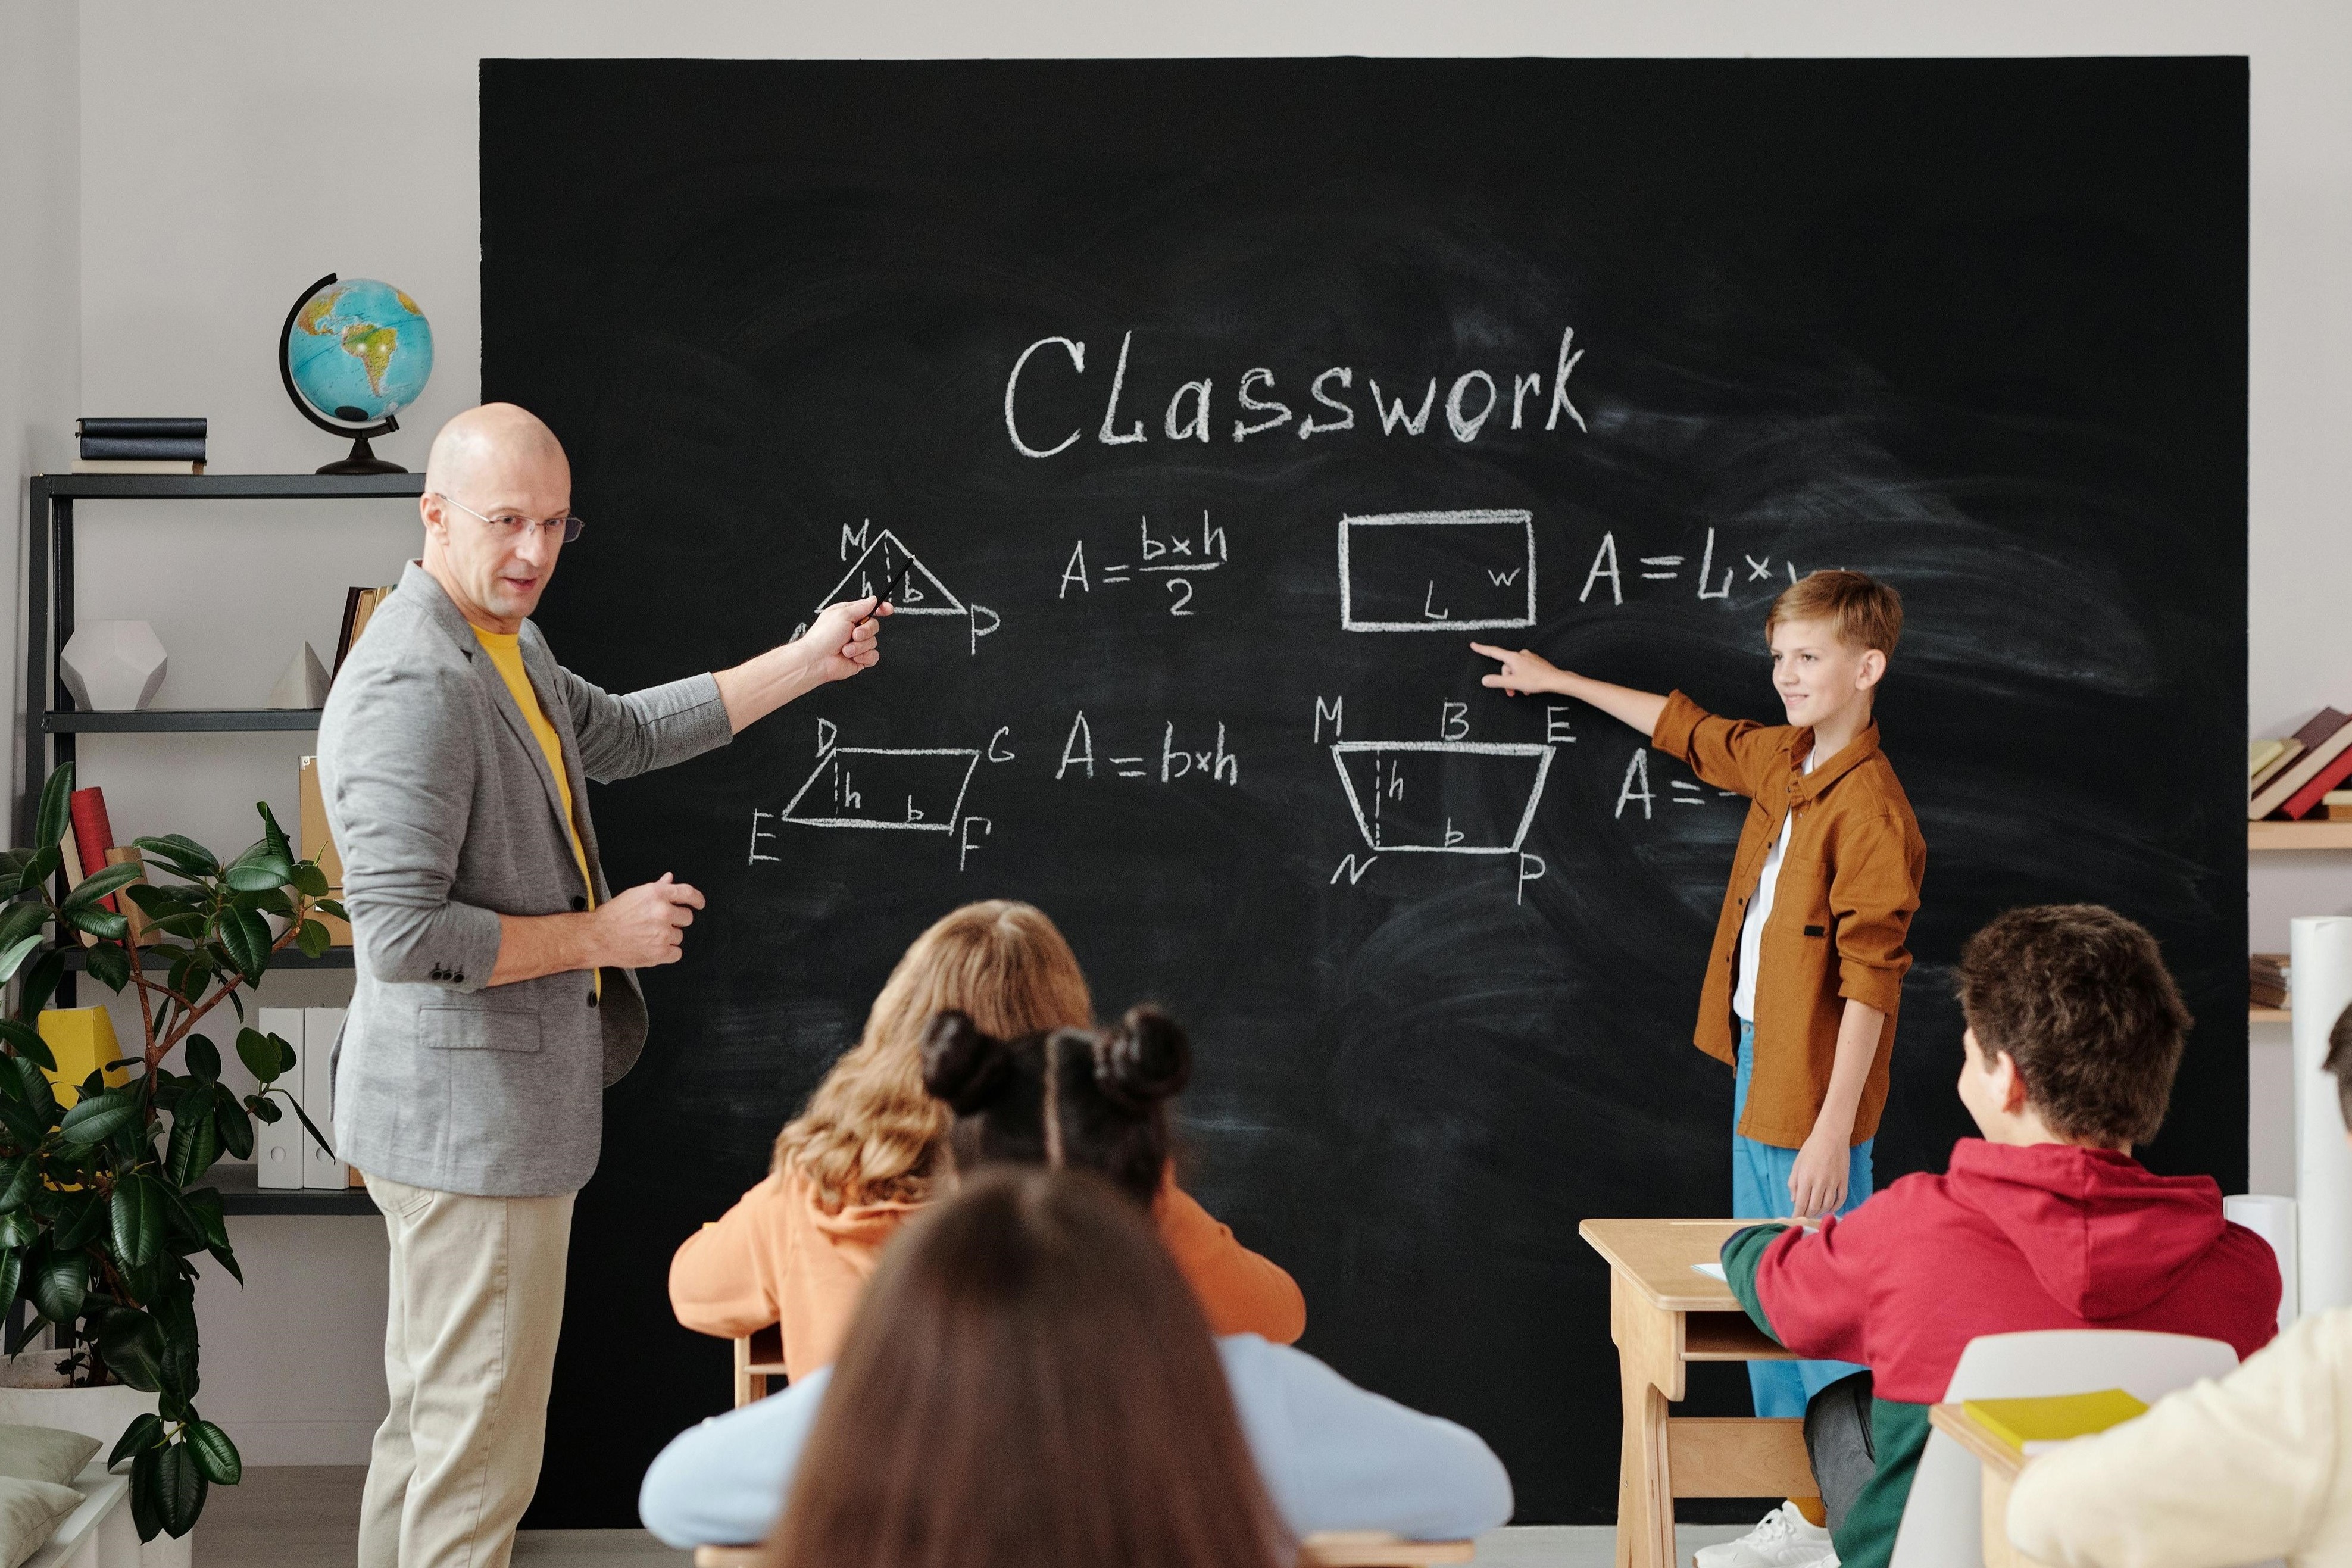 CLasswork
M
h b
P
A = b×h
2
L w
A = L×
D G
h
b
E F
A = b×h
M B E
h
b
N P
A =